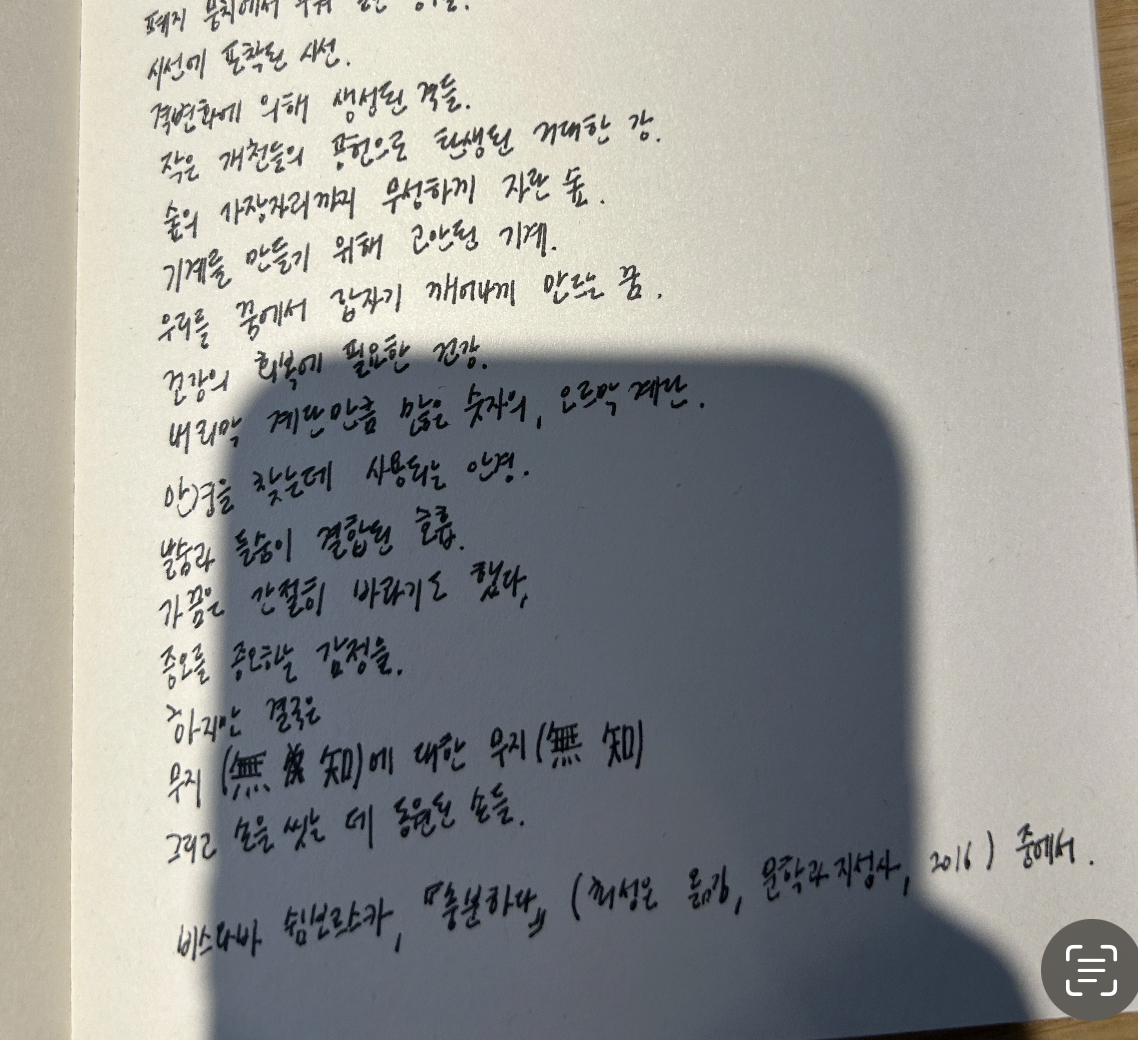 폐지 뭉치에서
시선에 포착된 시선.
격변화에 의해 생성된 격들.
작은 개천들의 공헌으로 탄생된 거대한 강.
숲의 가장자리까지 무성하게 자란 숲.
기계를 만들기 위해 고안된 기계.
우리를 꿈에서 갑자기 깨어나게 만드는 꿈.
건강의 회복에 필요한 건강.
내리막 계단만큼 많은 숫자의, 오르막 계단.
안경을 찾는데 사용되는 안경.
날숨과 들숨이 결합된 호흡.
가끔은 간절히 바라기도 했다,
증오를 증오하는 감정을.
하지만 결국은
무지 (無 知)에 대한 무지 (無 知)
그리고 손을 씻는 데 동원된 손들.
비스와바 쉼보르스카, 『충분하다』 (최성은 옮김, 문학과지성사, 2016) 중에서.